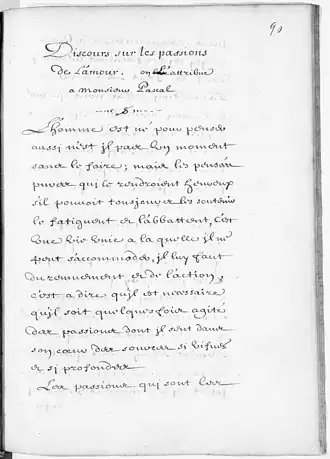 90
Discours sur les passions
de L'amour. on l'attribue
a Monsieur Pascal
L'homme est né pour penser
aussi n'est il pas un moment
sans le faire; mais les pensées
pures qui le rendroient heureux
s'il pouvoit tousjours les soutenir
le fatiguent et l'abbattent, c'est
une vie unie a la quelle il ne
peut s'accommoder, il luy faut
du remuement et de l'action,
c'est a dire qu'il est necessaire
qu'il soit quelques fois agité
des passions dont il sent dans
son cœur des sources si vives
et si profondes
Les passions qui sont les